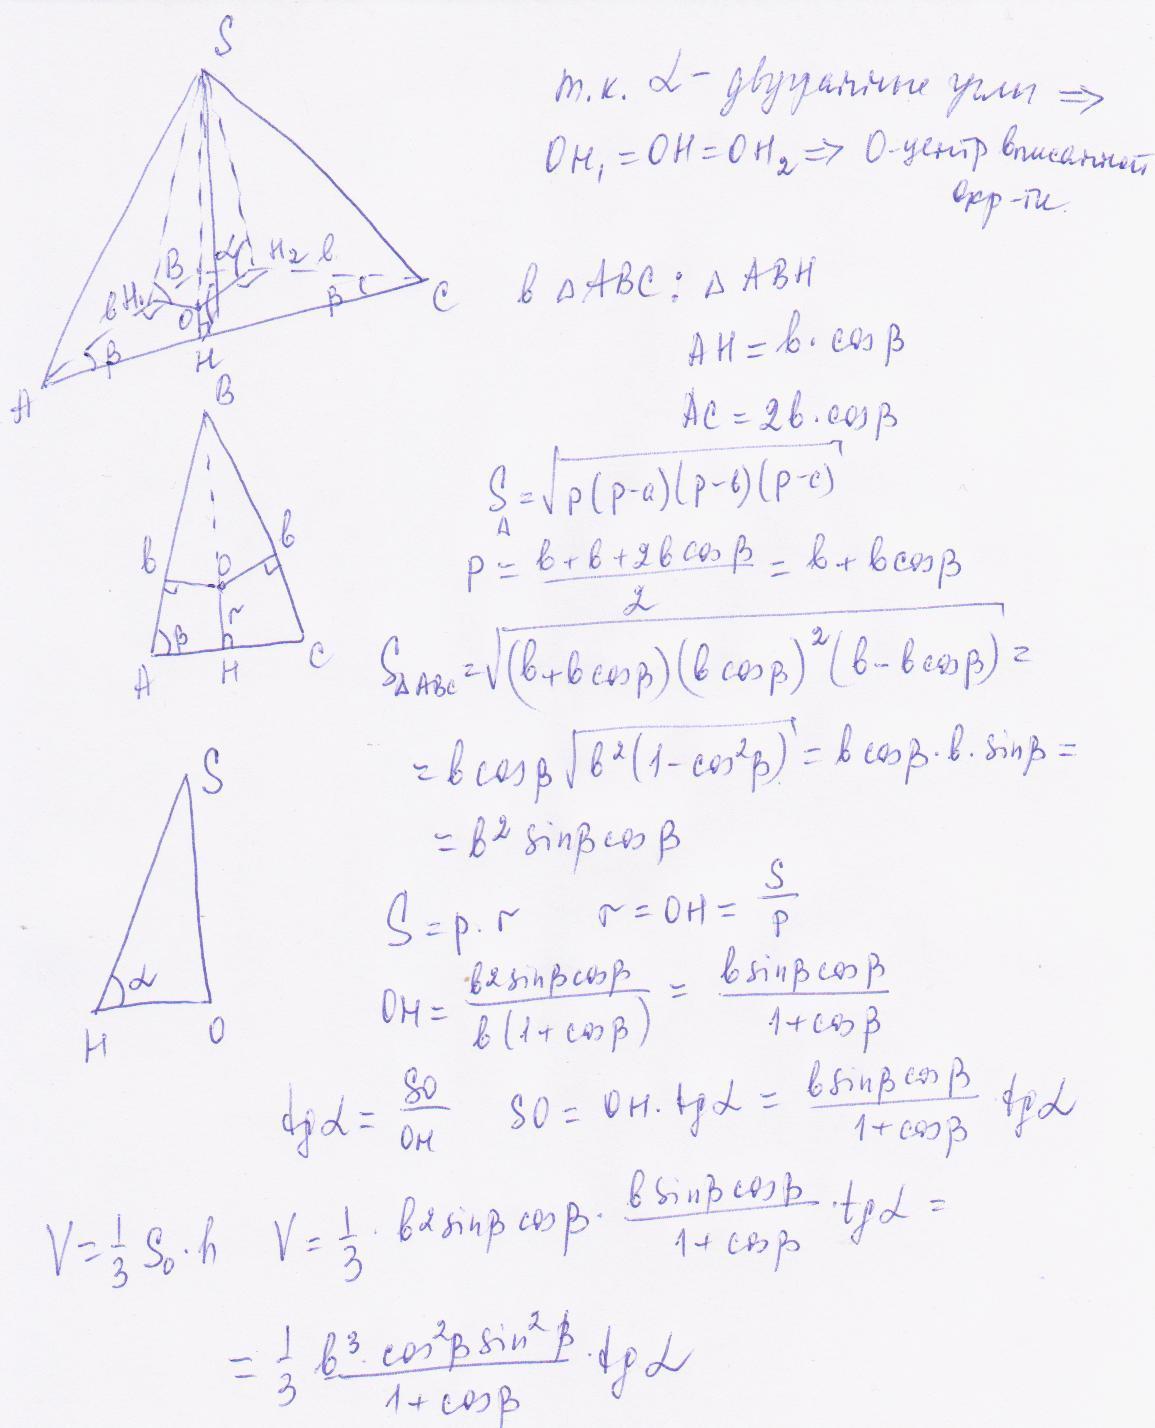 S
т.к. α - двугранные углы ⇒
OH₁ = OH = OH₂ ⇒ O-центр вписанной
окр-ти.
B H₁ B α H₂ B
β O β C
A H
в △ABC: △ABH
AH = b·cosβ
AC = 2b·cosβ
B
b O b
β r
A H C
S△ = √(p(p-a)(p-b)(p-c))
p = (b+b+2bcosβ)/2 = b+bcosβ
S△ABC = √((b+bcosβ)(bcosβ)²(b-bcosβ)) =
= bcosβ√(b²(1-cos²β)) = bcosβ·b·sinβ =
= b² sinβcosβ
S
α
H O
S = p·r r = OH = S/p
OH = b²sinβcosβ/(b(1+cosβ)) = bsinβcosβ/(1+cosβ)
tgα = SO/OH SO = OH·tgα = bsinβcosβ/(1+cosβ) tgα
V = 1/3 S₀·h V = 1/3·b²sinβcosβ·bsinβcosβ/(1+cosβ)·tgα =
= 1/3 b³·cos²βsin²β/(1+cosβ)·tgα